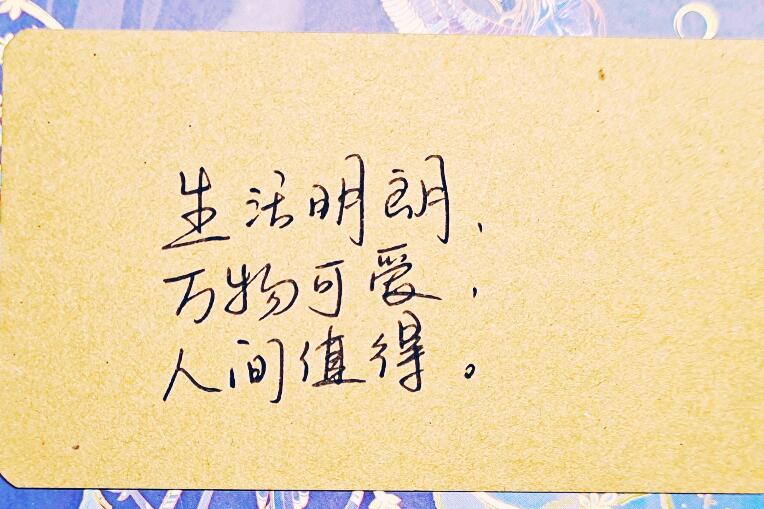 生活明朗，
万物可爱，
人间值得。